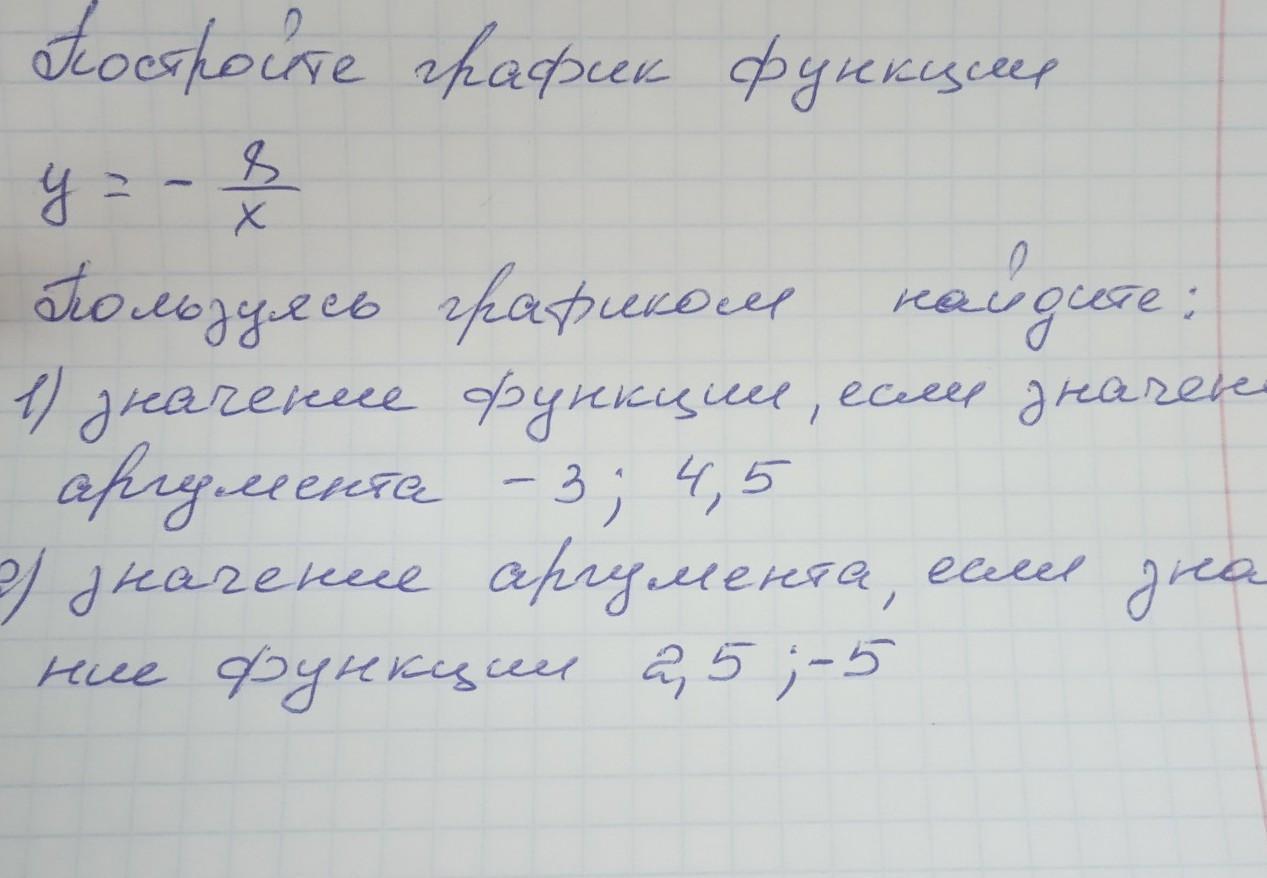 Постройте график функции
y = - 8/x
Пользуясь графиком найдите:
1) значение функции, если значен
аргумента - 3; 4,5
2) значение аргумента, если зна
ние функции 2,5 ; -5